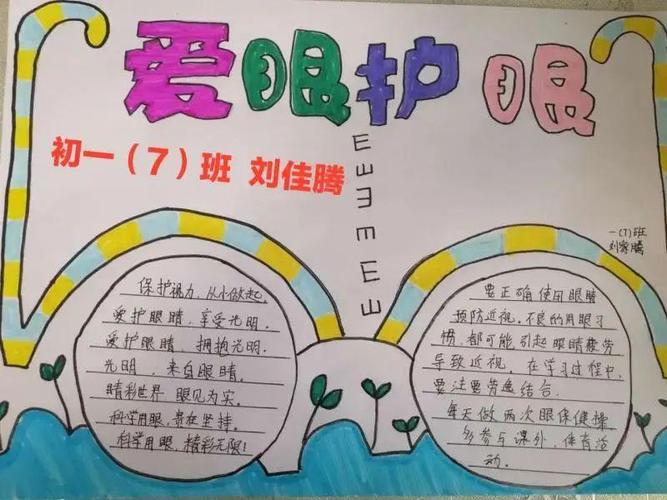 爱眼护眼
初一（7）班 刘佳腾
E
E
一(7)班
刘家腾
保护视力，从小做起，
爱护眼睛，享受光明。
爱护眼睛，拥抱光明。
光明，来自眼睛。
睛彩世界 眼见为实。
科学用眼，贵在坚持。
科学用眼，精彩无限！
要正确使用眼睛
预防近视。不良的用眼习
惯，都可能引起眼睛疲劳
导致近视，在学习过程中，
要注意劳逸结合。
每天做两次眼保健操
多参与课外，体育活
动。